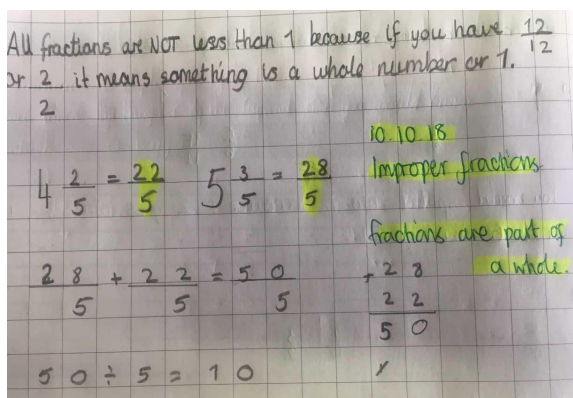 All fractions are NOT less than 1 because if you have 12/12
or 2/2 it means something is a whole number or 1.
10.10.18
Improper fractions
4 2/5 = 22/5 5 3/5 = 28/5
fractions are part of
a whole.
28/5 + 22/5 = 50/5
+ 28
22
50
50 ÷ 5 = 10